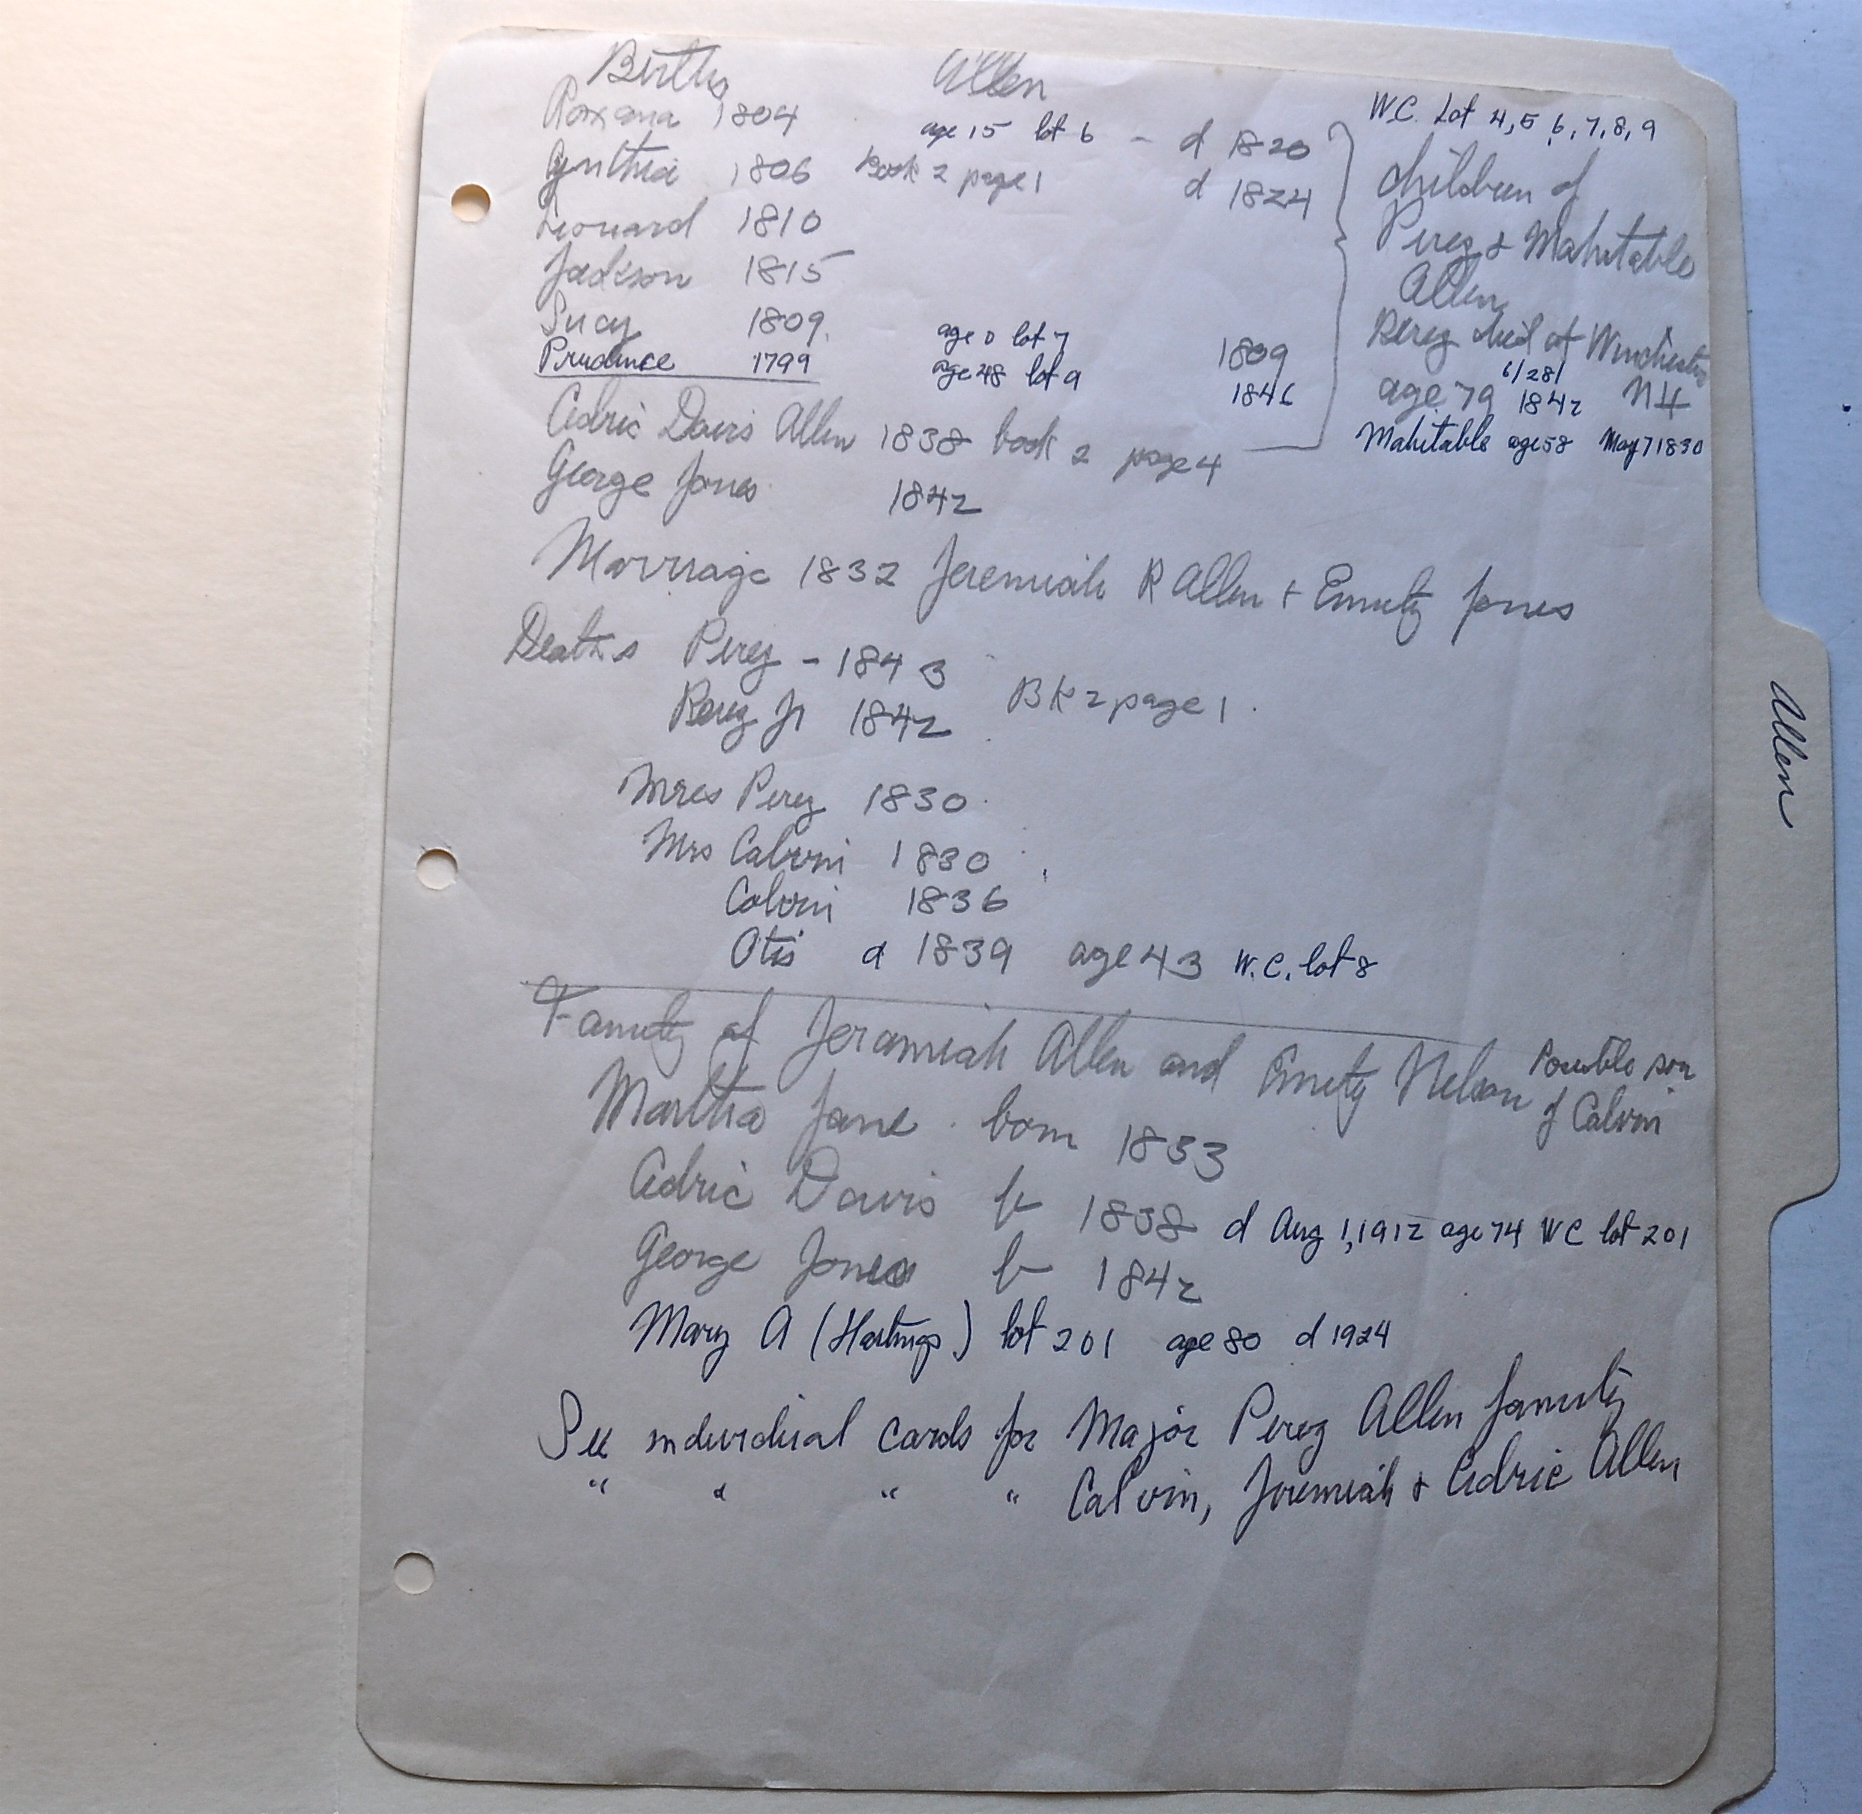 Births Allen
Roxana 1804 age 15 lot 6 - d 1820
Cynthia 1806 Book 2 page 1 d 1824
Leonard 1810
Jadison 1815
Lucy 1809 age 0 lot 7 1809
Prudence 1799 age 48 lot 9 1846
W.C. Lot 4, 5 6, 7, 8, 9
Children of
Perez & Mahitable
Allen
Perez died at Winchester
age 79 6/28/1842 NH
Mahitable age 58 May 7 1830
Cedric Davis Allen 1838 book 2 page 4
George Jones 1842
Marriage 1832 Jeremiah R Allen + Emily Jones
Deaths Perez - 1843
Perez Jr 1842 BK 2 page 1.
Mres Perez 1830
Mrs Calvin 1830
Calvin 1836
Otis d 1839 age 43 W.C. lot 8
Family of Jeramiah Allen and Emily Nelson Possible son
of Calvin
Martha Jane born 1833
Cedric Davis b 1838 d Aug 1, 1912 age 74 WC lot 201
George Jones b 1842
Mary A (Hastings) lot 201 age 80 d 1924
See individual cards for Major Perez Allen family
" " " " Calvin, Jeremiah & Cedric Allen
Allen